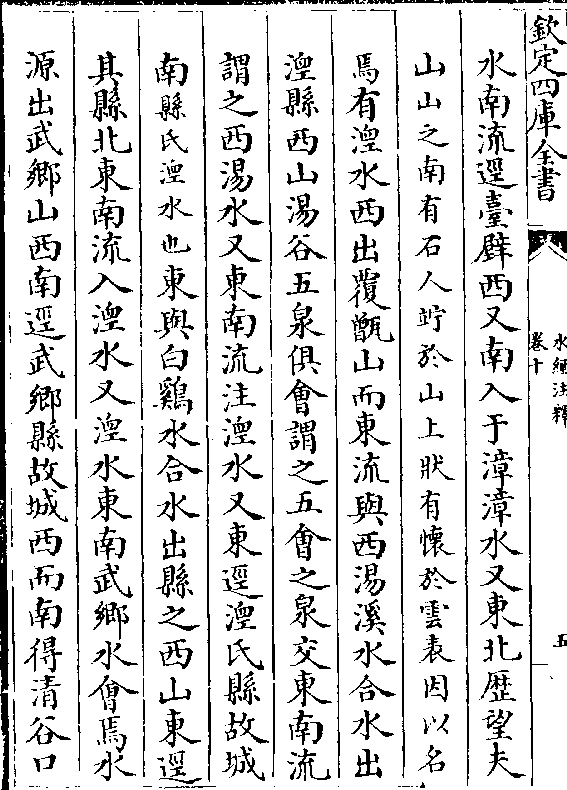 欽定四庫全書
水經注釋
卷十
五
水南流逕臺壁西又南入于漳漳水又東北歷望夫
山山之南有石人竚於山上狀有懷於雲表因以名
焉有湼水西出覆甑山而東流與西湯溪水合水出
湼縣西山湯谷五泉俱會謂之五會之泉交東南流
謂之西湯水又東南流注湼水又東逕湼氏縣故城
南縣氏湼水也東與白雞水合水出縣之西山東逕
其縣北東南流入湼水又湼水東南武鄉水會焉水
源出武鄉山西南逕武鄉縣故城西而南得清谷口